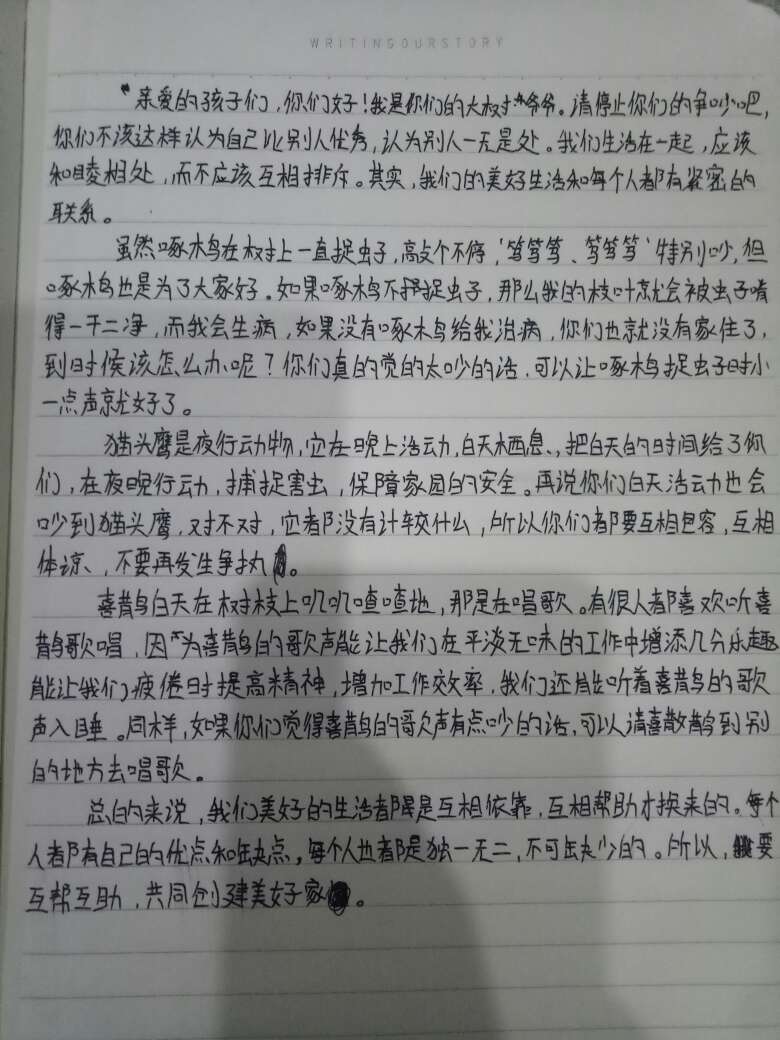 WRITINGOURSTORY
"亲爱的孩子们，你们好！我是你们的大树爷爷。请停止你们的争吵吧，
你们不该这样认为自己比别人优秀，认为别人一无是处。我们生活在一起，应该
和睦相处，而不应该互相排斥。其实，我们的美好生活和每个人都有紧密的
联系。
虽然啄木鸟在树上一直捉虫子，敲个不停，'笃笃笃、笃笃笃'特别吵，但
啄木鸟也是为了大家好。如果啄木鸟不捉虫子，那么我的枝叶就会被虫子啃
得一干二净，而我会生病，如果没有啄木鸟给我治病，你们也就没有家住了，
到时候该怎么办呢？你们真的觉的太吵的话，可以让啄木鸟捉虫子时小
一点声就好了。
猫头鹰是夜行动物，它在晚上活动，白天栖息、，把白天的时间给了你
们，在夜晚行动，捕捉害虫，保障家园的安全。再说你们白天活动也会
吵到猫头鹰，对不对，它都没有计较什么，所以你们都要互相包容，互相
体谅、，不要再发生争执。
喜鹊白天在树枝上叽叽喳喳地，那是在唱歌。有很人都喜欢听喜
鹊歌唱，因为喜鹊的歌声能让我们在平淡无味的工作中增添几分乐趣
能让我们疲倦时提高精神，增加工作效率，我们还能听着喜鹊的歌
声入睡。同样，如果你们觉得喜鹊的歌声有点吵的话，可以请喜鹊到别
的地方去唱歌。
总的来说，我们美好的生活都是互相依靠，互相帮助才换来的。每个
人都有自己的优点和缺点，每个人也都是独一无二，不可缺少的。所以，要
互帮互助，共同创建美好家。